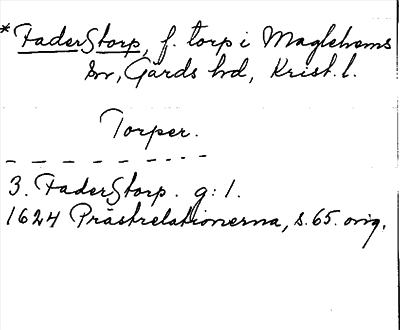 *FaderStorp, f. torp i Maglehems
sn, Gärds hd, Krist. l.
Torper.
3. FaderStorp. g: 1.
1624 Prästrelationerna, s. 65. orig.